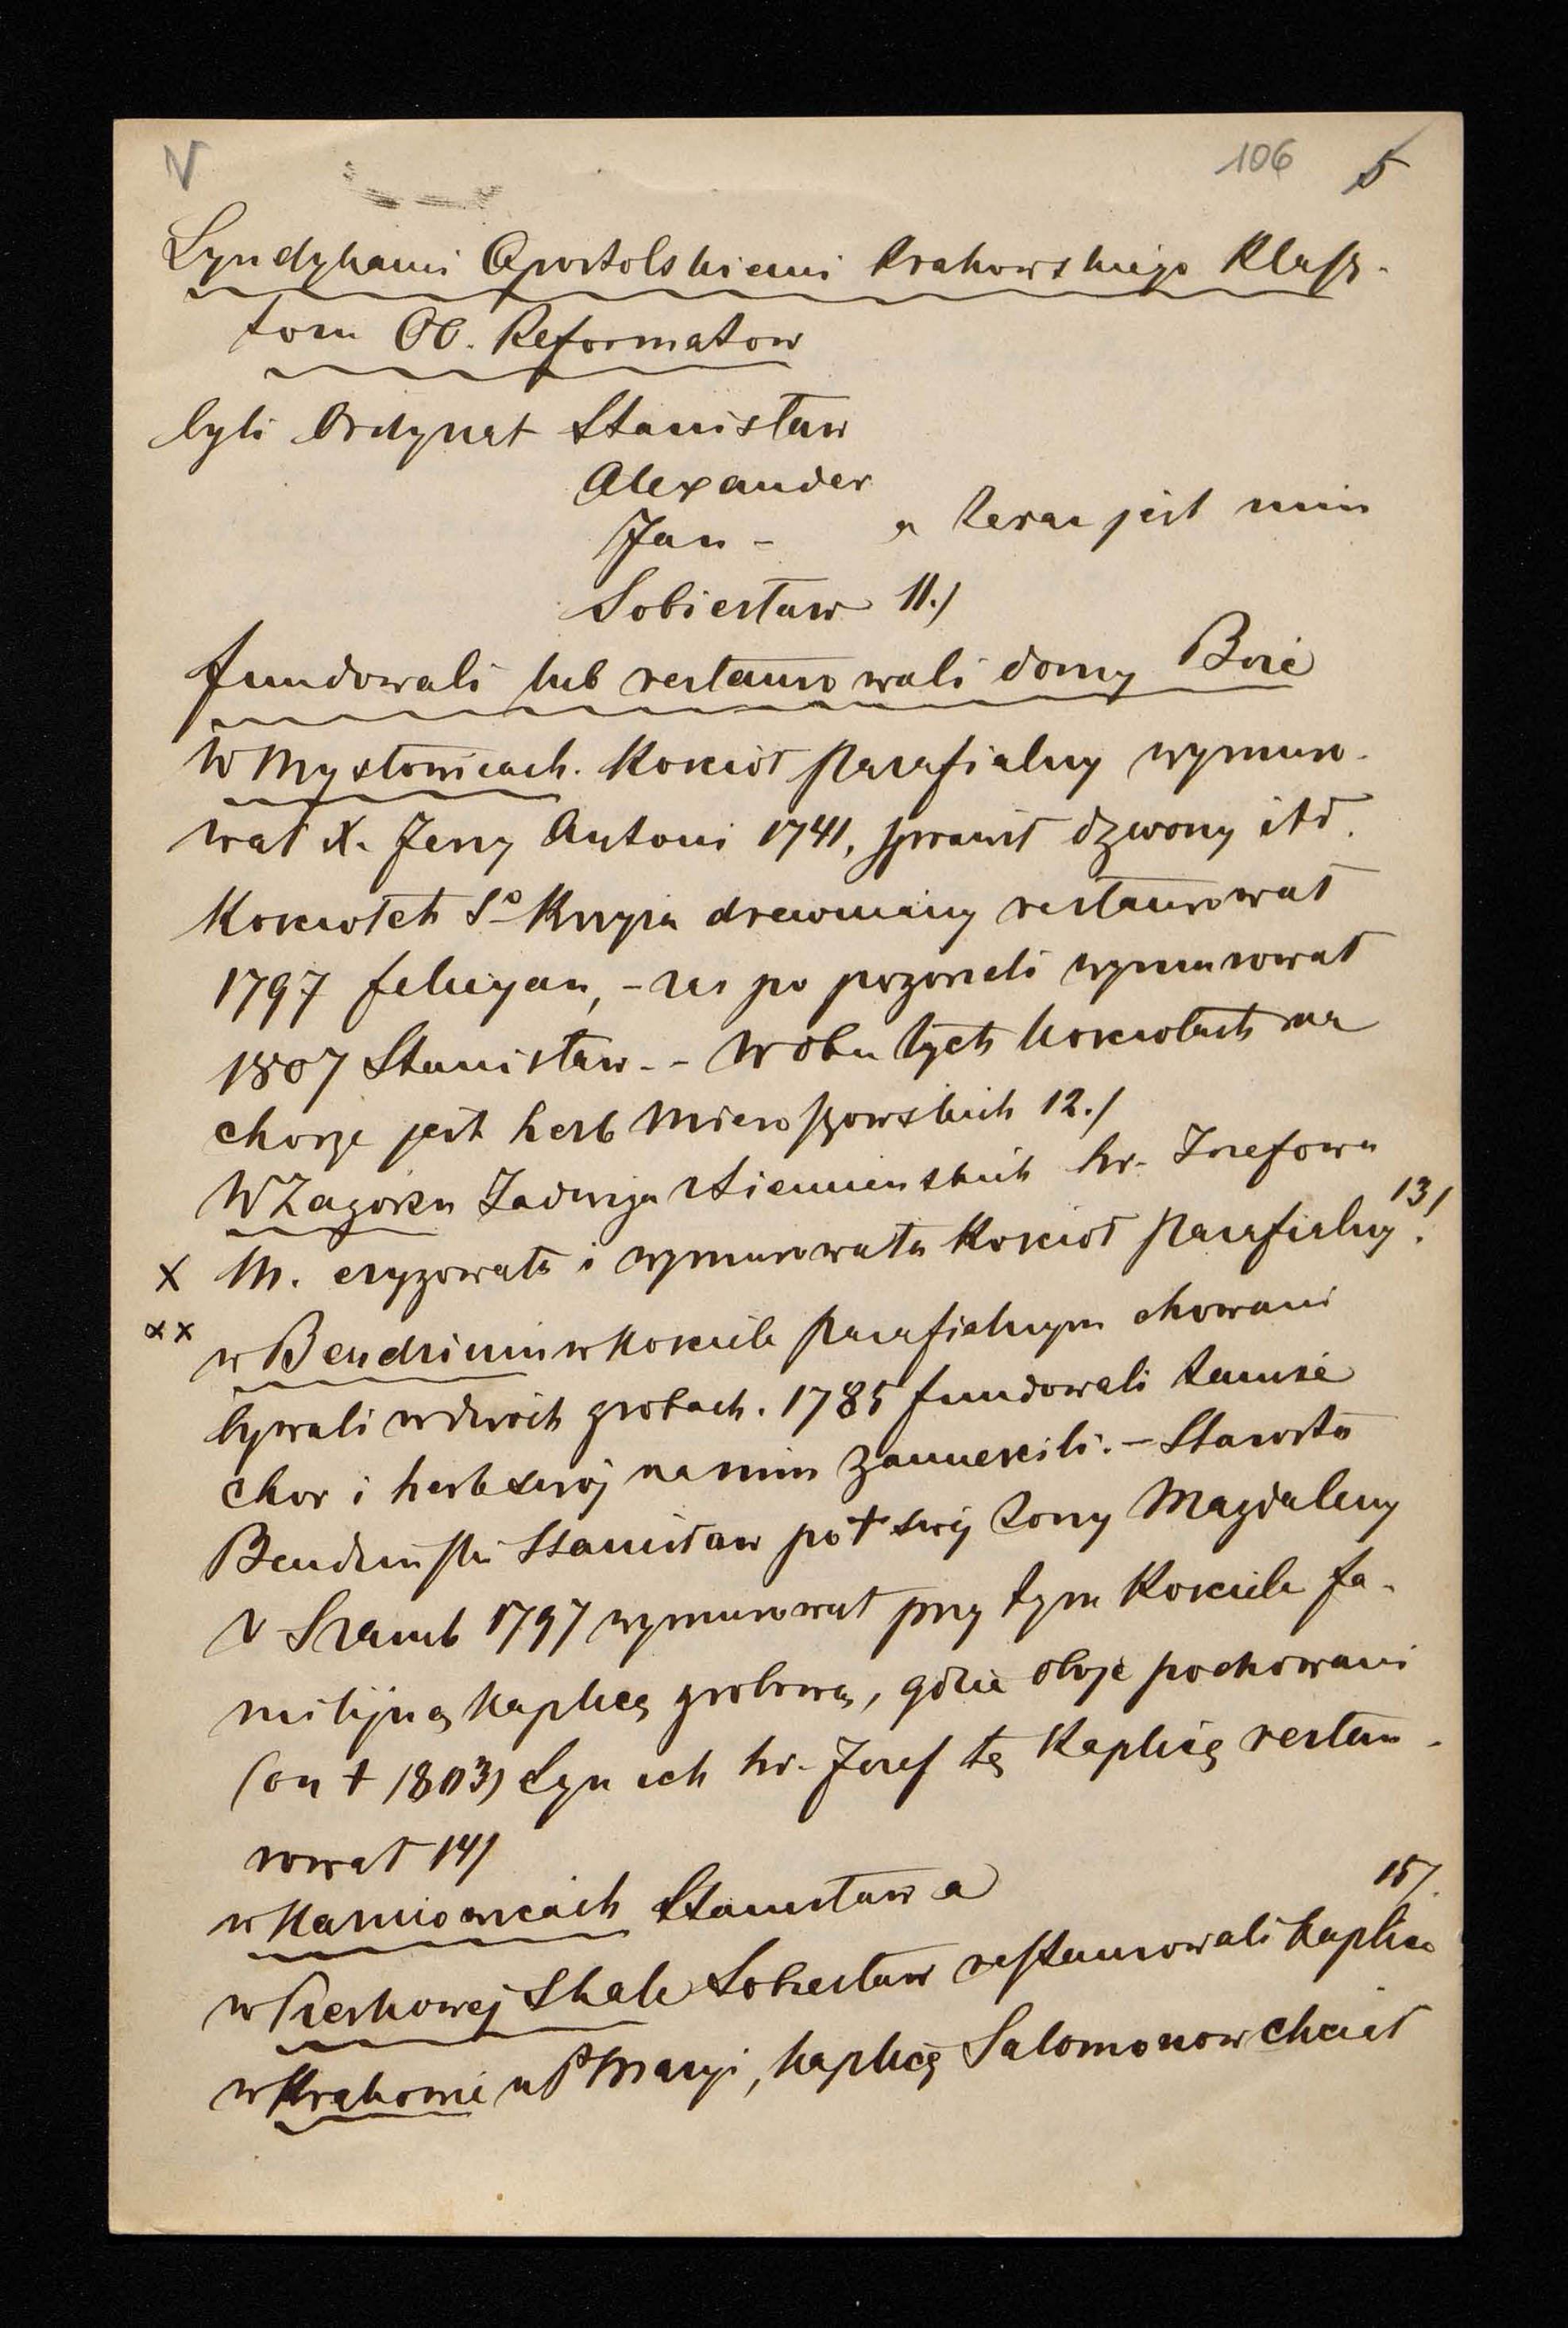 V 106 5
Syndykami Apostolskiemi Krakowskiego Klasz-
toru OO. Reformatow
byli Ordynat Stanisław
Alexander
Jan - a teraz jest nim
Sobiesław 11./
fundowali lub restaurowali domy Boże
W Mysłowicach. Kościoł parafialny wymuro-
wał X. Jerzy Antoni 1741, sprawił dzwony itd.
Kosciołek So Krzyża drewniany restaurował
1797 Felicyan, - zas po pogorzeli wymurował
1807 Stanisław. - W obu tych kosciołach na
chorze jest herb Mieroszowskich 12./
W Zagorzu Jadwiga z Siemieńskich hr. Jozefowa
X M. erygowała i wymurowała Kościoł parafialny 13/.
xx w Bendzinie w Kosciele parafialnym chowani
bywali w dwóch grobach. 1785 fundowali tamże
chor i herb swój na nim zamiescili. - Starosta
Bendzinski Stanisław po † swéj żony Magdaleny
z Szemb 1797 wymurował przy tym Kosciele fa-
milijną Kaplicę grobową, gdzie oboje pochowani
(on † 1803) Syn ich hr. Jozef tę Kaplicę restau-
rował 14/
w Karniowicach Stanisław a 15/.
w Pieskowej Skale Sobiesław restaurowali kaplice
w Krakowie u P Maryi, kaplicę Salomonow chciał